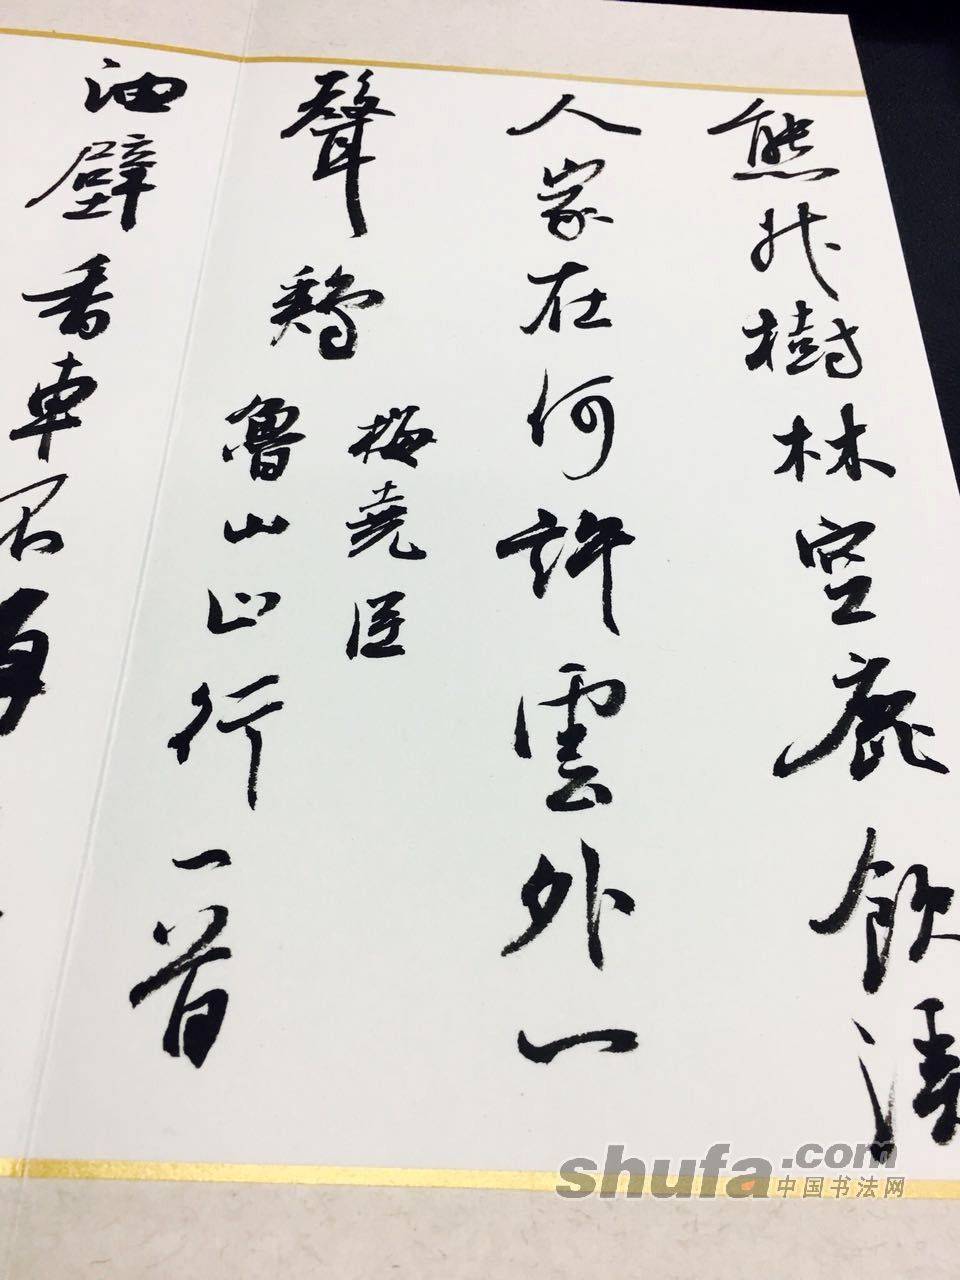 熊升樹林空鹿飲溪
人家在何許雲外一
聲鷄
梅堯臣
魯山山行一首
油壁香車不再
shufa.com
中国书法网